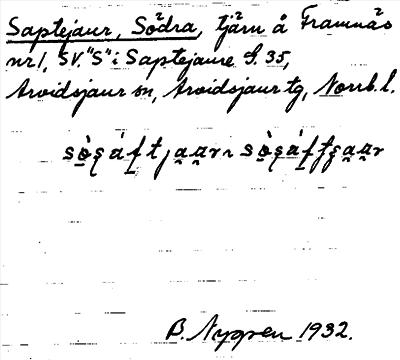 Saptejaur, Södra, tjärn å Framnäs
nr 1, SV. "S" i Saptejaure S. 35,
Arvidsjaur sn, Arvidsjaur tg, Norrb. l.
B. Nygren 1932.